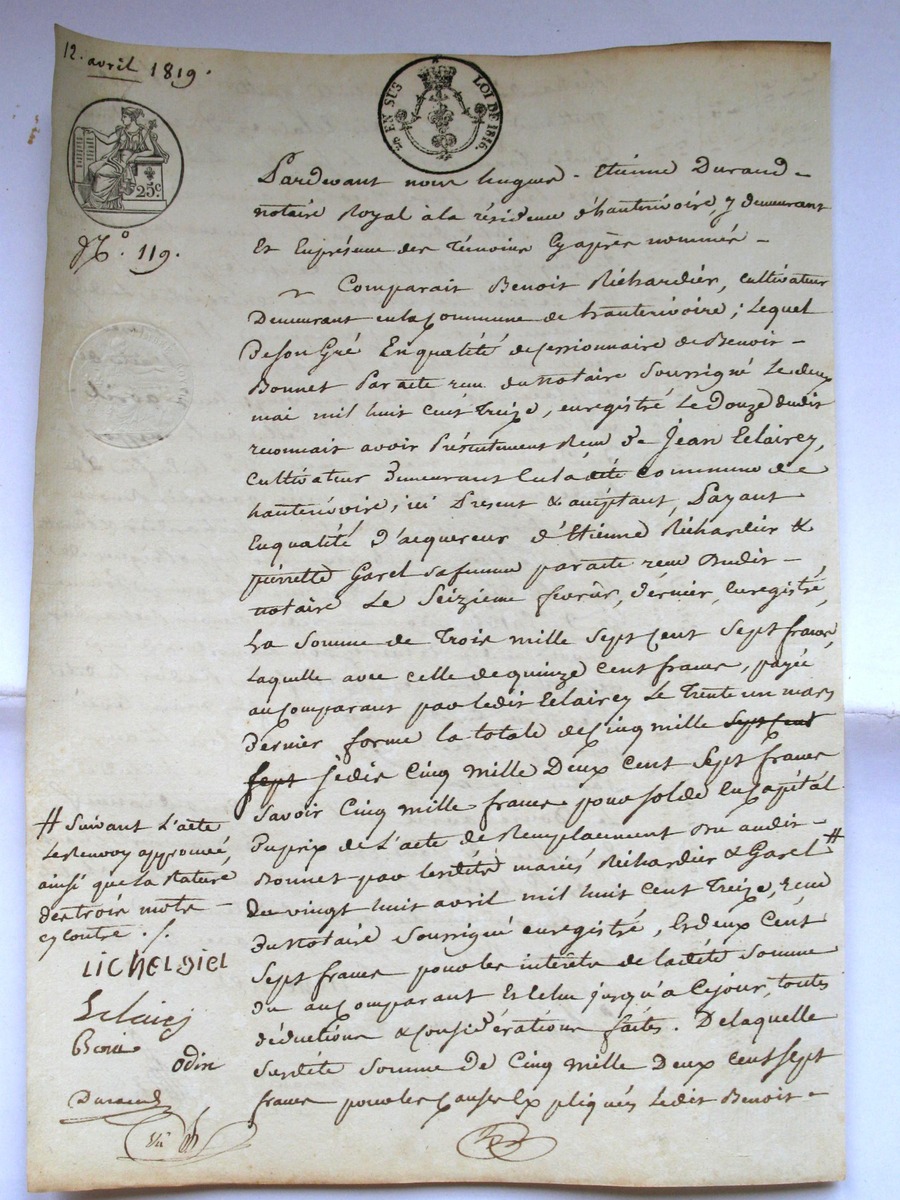 12. avril 1819.
25 EN SUS LOI DE 1816.
25c.
N.o 119.
Pardevant nous hugues - Etienne Durand -
notaire Royal à la résidence d'hauterivoire, y demeurant
Et En présence des Témoins Cy après nommés -
Comparait Benoit Richardier, cultivateur
Demeurant en la Commune de hauterivoire; Lequel
De son Gré En qualité de Cessionnaire de Benoit -
Bonnet Par acte recu du notaire soussigné Le deux
mai mil huit cent Treize, enregistré Le Douze dudit
reconnait avoir Présentement Recu De Jean Eclairey,
cultivateur Demeurant En la dité commune de
hauterivoire; ici Present & acceptant, Payant
En qualité D'acquereur d'Etienne Richardier &
pierrette Garel sa femme par acte recu Dudit -
notaire Le Seizieme fevrier, dernier, Enregistré,
La somme de Trois mille Sept Cent Sept francs
Laquelle avec celle de quinze Cent francs, payée
au Comparant par ledit Eclairey Le Trente un mars
Dernier forme la totale de Cinq mille Sept Cent
Sept Jédis Cinq mille Deux Cent Sept francs
Savoir Cinq mille francs pour solde En Capital
Du prix de L'acte de Remplacement Du audit -
Bonnet par lesdité mariés Richardier & Garel #
du vingt huit avril mil huit Cent Treize, recu
Du notaire Soussigné enregistré, Et deux Cent
Sept francs pour les intérêts de ladité Somme
Du au Comparant Echelue jusqu'à Cejour, toutes
déductions & Considérations faites. De laquelle
Susdité Somme de Cinq mille Deux Cent Sept
francs pour les Causes Expliqués Ledit Benoit -
# Suivant L'acte
Le Renvoy approuvé,
ainsi que la Rature
des trois mots -
cy contre ./.
LICHELDIEL
Eclairey
odin
Durand